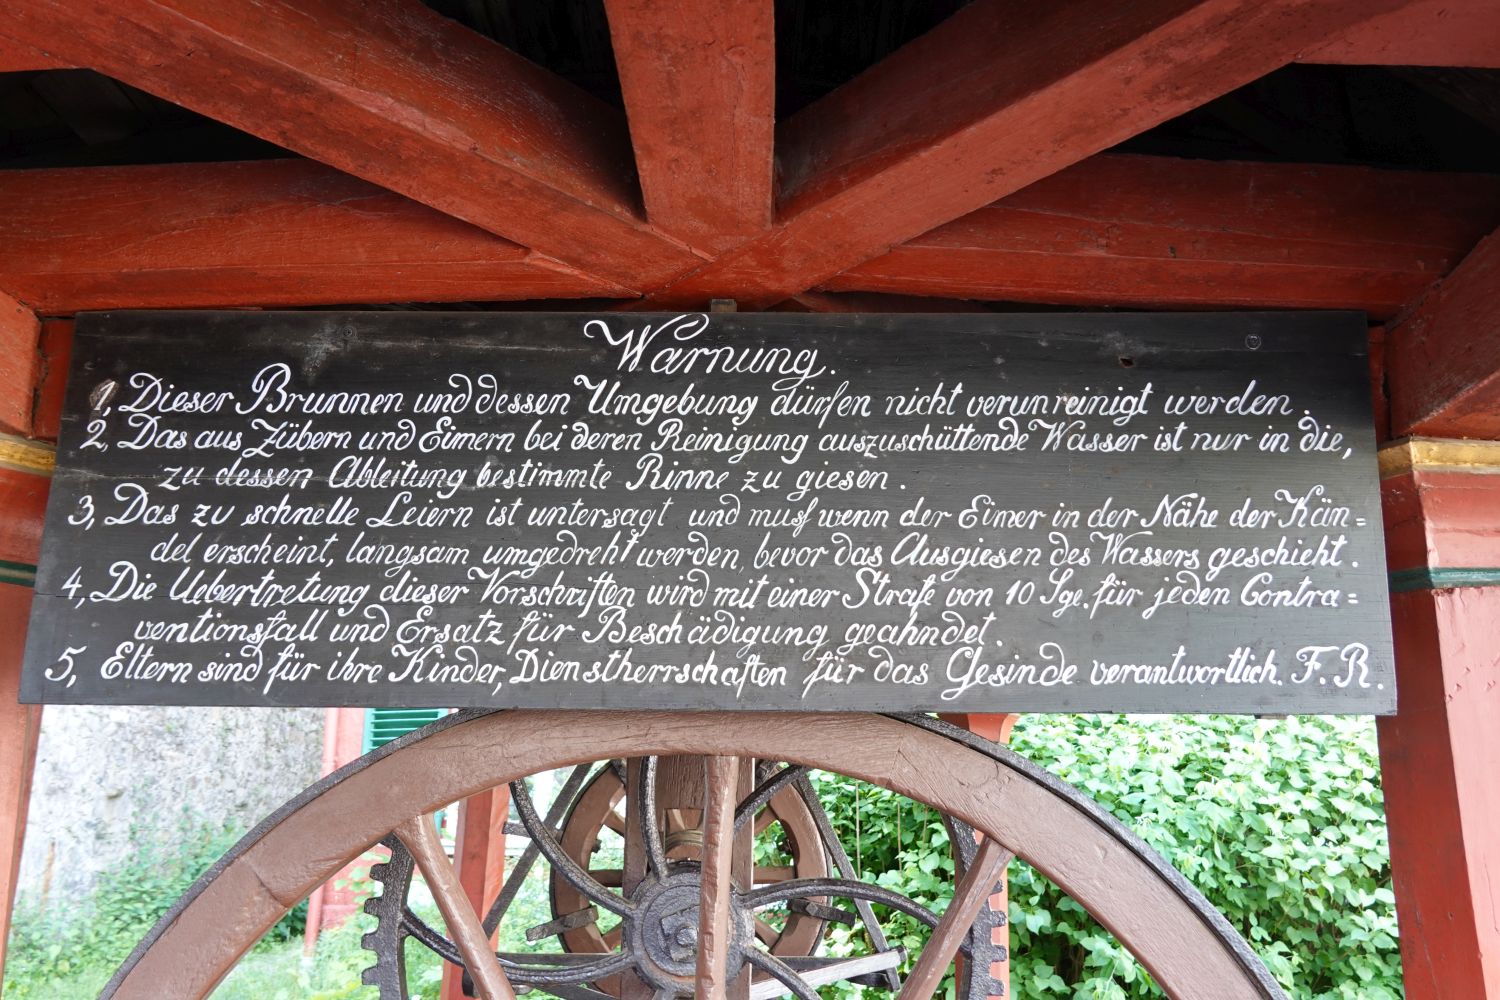 Warnung.
1, Dieser Brunnen und dessen Umgebung dürfen nicht verunreinigt werden.
2, Das aus Zübern und Eimern bei deren Reinigung auszuschüttende Wasser ist nur in die,
zu dessen Ableitung bestimmte Rinne zu giesen.
3, Das zu schnelle Leiern ist untersagt und muß wenn der Eimer in der Nähe der Kän=
del erscheint, langsam umgedreht werden, bevor das Ausgiesen des Wassers geschieht.
4, Die Uebertretung dieser Vorschriften wird mit einer Strafe von 10 Sge. für jeden Contra=
ventionsfall und Ersatz für Beschädigung geahndet.
5, Eltern sind für ihre Kinder, Dienstherrschaften für das Gesinde verantwortlich. F. R.